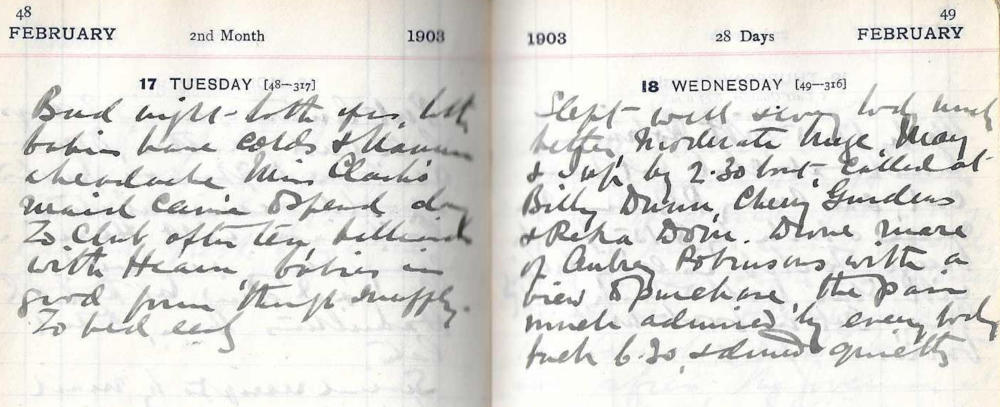 48
FEBRUARY 2nd Month 1903
17 TUESDAY [48—317]
Bad night - both
babies have colds & Mamma
a headache Miss Clark's
maid came to spend day
To Club after tea, billiards
with Hearn, babies in
good form though snuffly.
To bed early
49
1903 28 Days FEBRUARY
18 WEDNESDAY [49—316]
Slept well body much
better Moderate
& I up by 2.30 boat. Called at
Billy Dunn, Cherry Gardens
& Drove mare
of Aubrey Robinsons with a
view to purchase, the pair
much admired by every body
back 6.30, & dined quietly